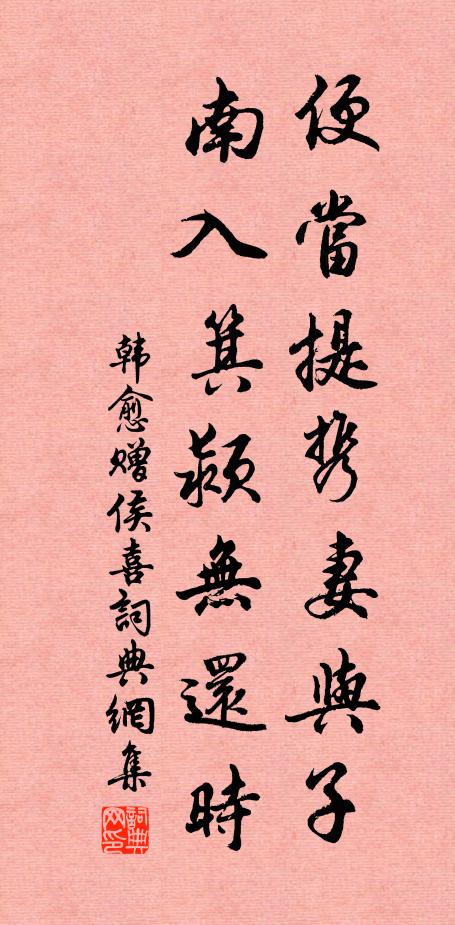 便當提携妻與子
南入箕颍無還時
韩愈赠侯喜詞典網集
詞典网印